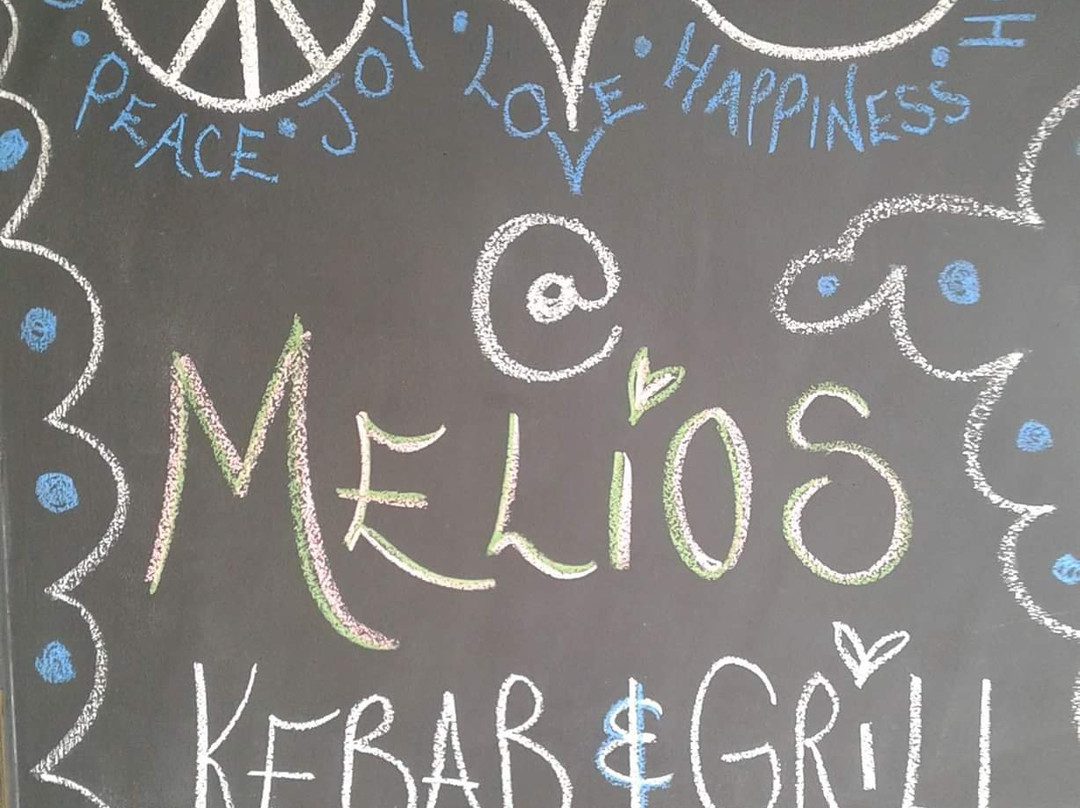 PEACE • JOY • LOVE • HAPPINESS •
@
MELiOS
KEBAB & GRiLL